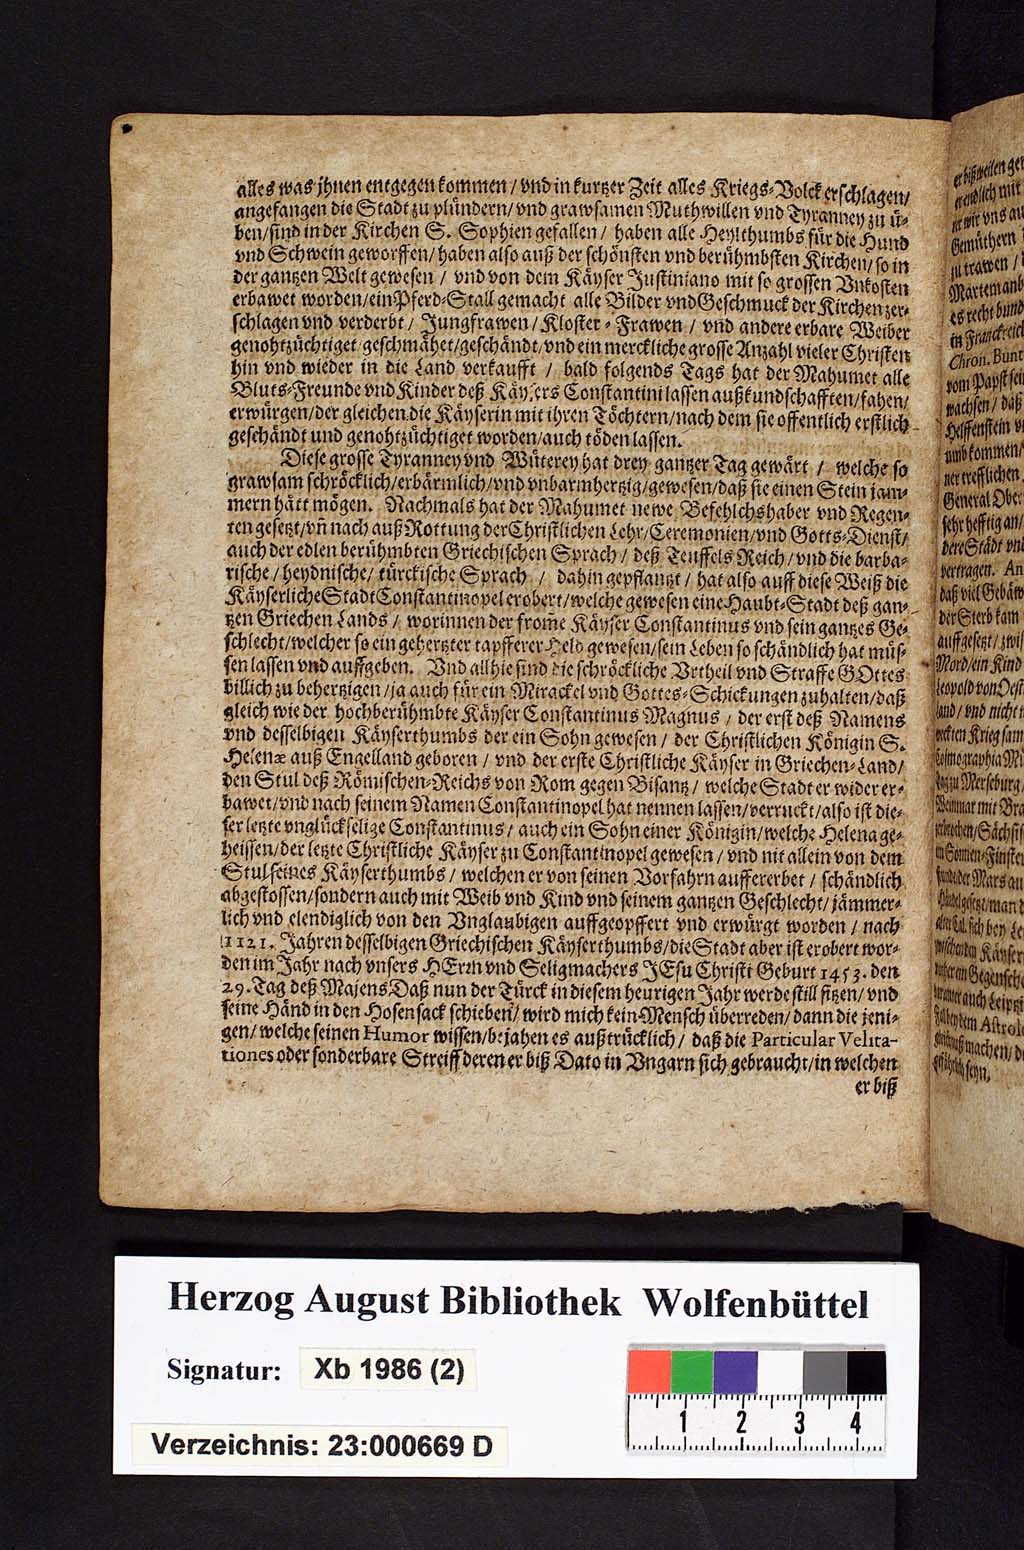 alles was jhnen entgegen kommen / vnd in kurtzer Zeit alles Kriegs-Volck erschlagen /
angefangen die Stadt zu plündern / vnd grawsamen Muthwillen vnd Tyranney zu ü-
ben / sind in der Kirchen S. Sophien gefallen / haben alle Heylthumbs für die Hund
vnd Schwein geworffen / haben also auß der schönsten vnd berühmbsten Kirchen / so in
der gantzen Welt gewesen / vnd von dem Käyser Justiniano mit so grossen Vnkosten
erbawet worden / ein Pferd-Stall gemacht alle Bilder vnd Geschmuck der Kirchen zer-
schlagen vnd verderbt / Jungfrawen / Kloster-Frawen / vnd andere erbare Weiber
genohtzüchtiget / geschmähet / geschändt / vnd ein merckliche grosse Anzahl vieler Christen
hin vnd wieder in die Land verkaufft / bald folgends Tags hat der Mahumet alle
Bluts-Freunde vnd Kinder deß Käysers Constantini lassen außkundschafften / fahen /
erwürgen / der gleichen die Käyserin mit ihren Töchtern / nach dem sie offentlich erstlich
geschändt und genohtzüchtiget worden / auch töden lassen.
Diese grosse Tyranney vnd Wüterey hat drey gantzer Tag gewärt / welche so
grawsam schröcklich / erbärmlich / vnd vnbarmhertzig / gewesen / daß sie einen Stein jam-
mern hätt mögen. Nachmals hat der Mahumet newe Befehlchshaber vnd Regen-
ten gesetzt / vñ nach auß Rottung der Christlichen Lehr / Ceremonien / vnd Gotts-Dienst /
auch der edlen berühmbten Griechischen Sprach / deß Teuffels Reich / vnd die barba-
rische / heydnische / türckische Sprach / dahin gepflantzt / hat also auff diese Weiß die
Käyserliche Stadt Constantinopel erobert / welche gewesen eine Haubt-Stadt deß gan-
tzen Griechen Lands / worinnen der from̃e Käyser Constantinus vnd sein gantzes Ge-
schlecht / welcher so ein gehertzter tapfferer Held gewesen / sein Leben so schändlich hat müs-
sen lassen vnd auffgeben. Vnd allhie sind die schröckliche Vrtheil vnd Straffe GOttes
billich zu behertzigen / ja auch für ein Mirackel vnd Gottes-Schickungen zuhalten / daß
gleich wie der hochberühmbte Käyser Constantinus Magnus / der erst deß Namens
vnd desselbigen Käyserthumbs der ein Sohn gewesen / der Christlichen Königin S.
Helenæ auß Engelland geboren / vnd der erste Christliche Käyser in Griechen-Land /
den Stul deß Römischen-Reichs von Rom gegen Bisantz / welche Stadt er wider er-
bawet / vnd nach seinem Namen Constantinopel hat nennen lassen / verruckt / also ist die-
ser letzte vnglückselige Constantinus / auch ein Sohn einer Königin / welche Helena ge-
heissen / der letzte Christliche Käyser zu Constantinopel gewesen / vnd nit allein von dem
Stul seines Käyserthumbs / welchen er von seinen Vorfahrn auffererbet / schändlich
abgestossen / sondern auch mit Weib vnd Kind vnd seinem gantzen Geschlecht / jämmer-
lich vnd elendiglich von den Vnglaubigen auffgeopffert vnd erwürgt worden / nach
1121. Jahren desselbigen Griechischen Käyserthumbs / die Stadt aber ist erobert wor-
den im Jahr nach vnsers HErrn vnd Seligmachers JEsu Christi Geburt 1453. den
29. Tag deß Majens Daß nun der Türck in diesem heurigen Jahr werde still sitzen / vnd
seine Händ in den Hosensack schieben / wird mich kein Mensch überreden / dann die jeni-
gen / welche seinen Humor wissen / bejahen es außtrücklich / daß die Particular Velita-
tiones oder sonderbare Streiff deren er biß Dato in Vngarn sich gebraucht / in welchen
er biß
Herzog August Bibliothek Wolfenbüttel
Signatur: Xb 1986 (2)
Verzeichnis: 23:000669 D
1 2 3 4